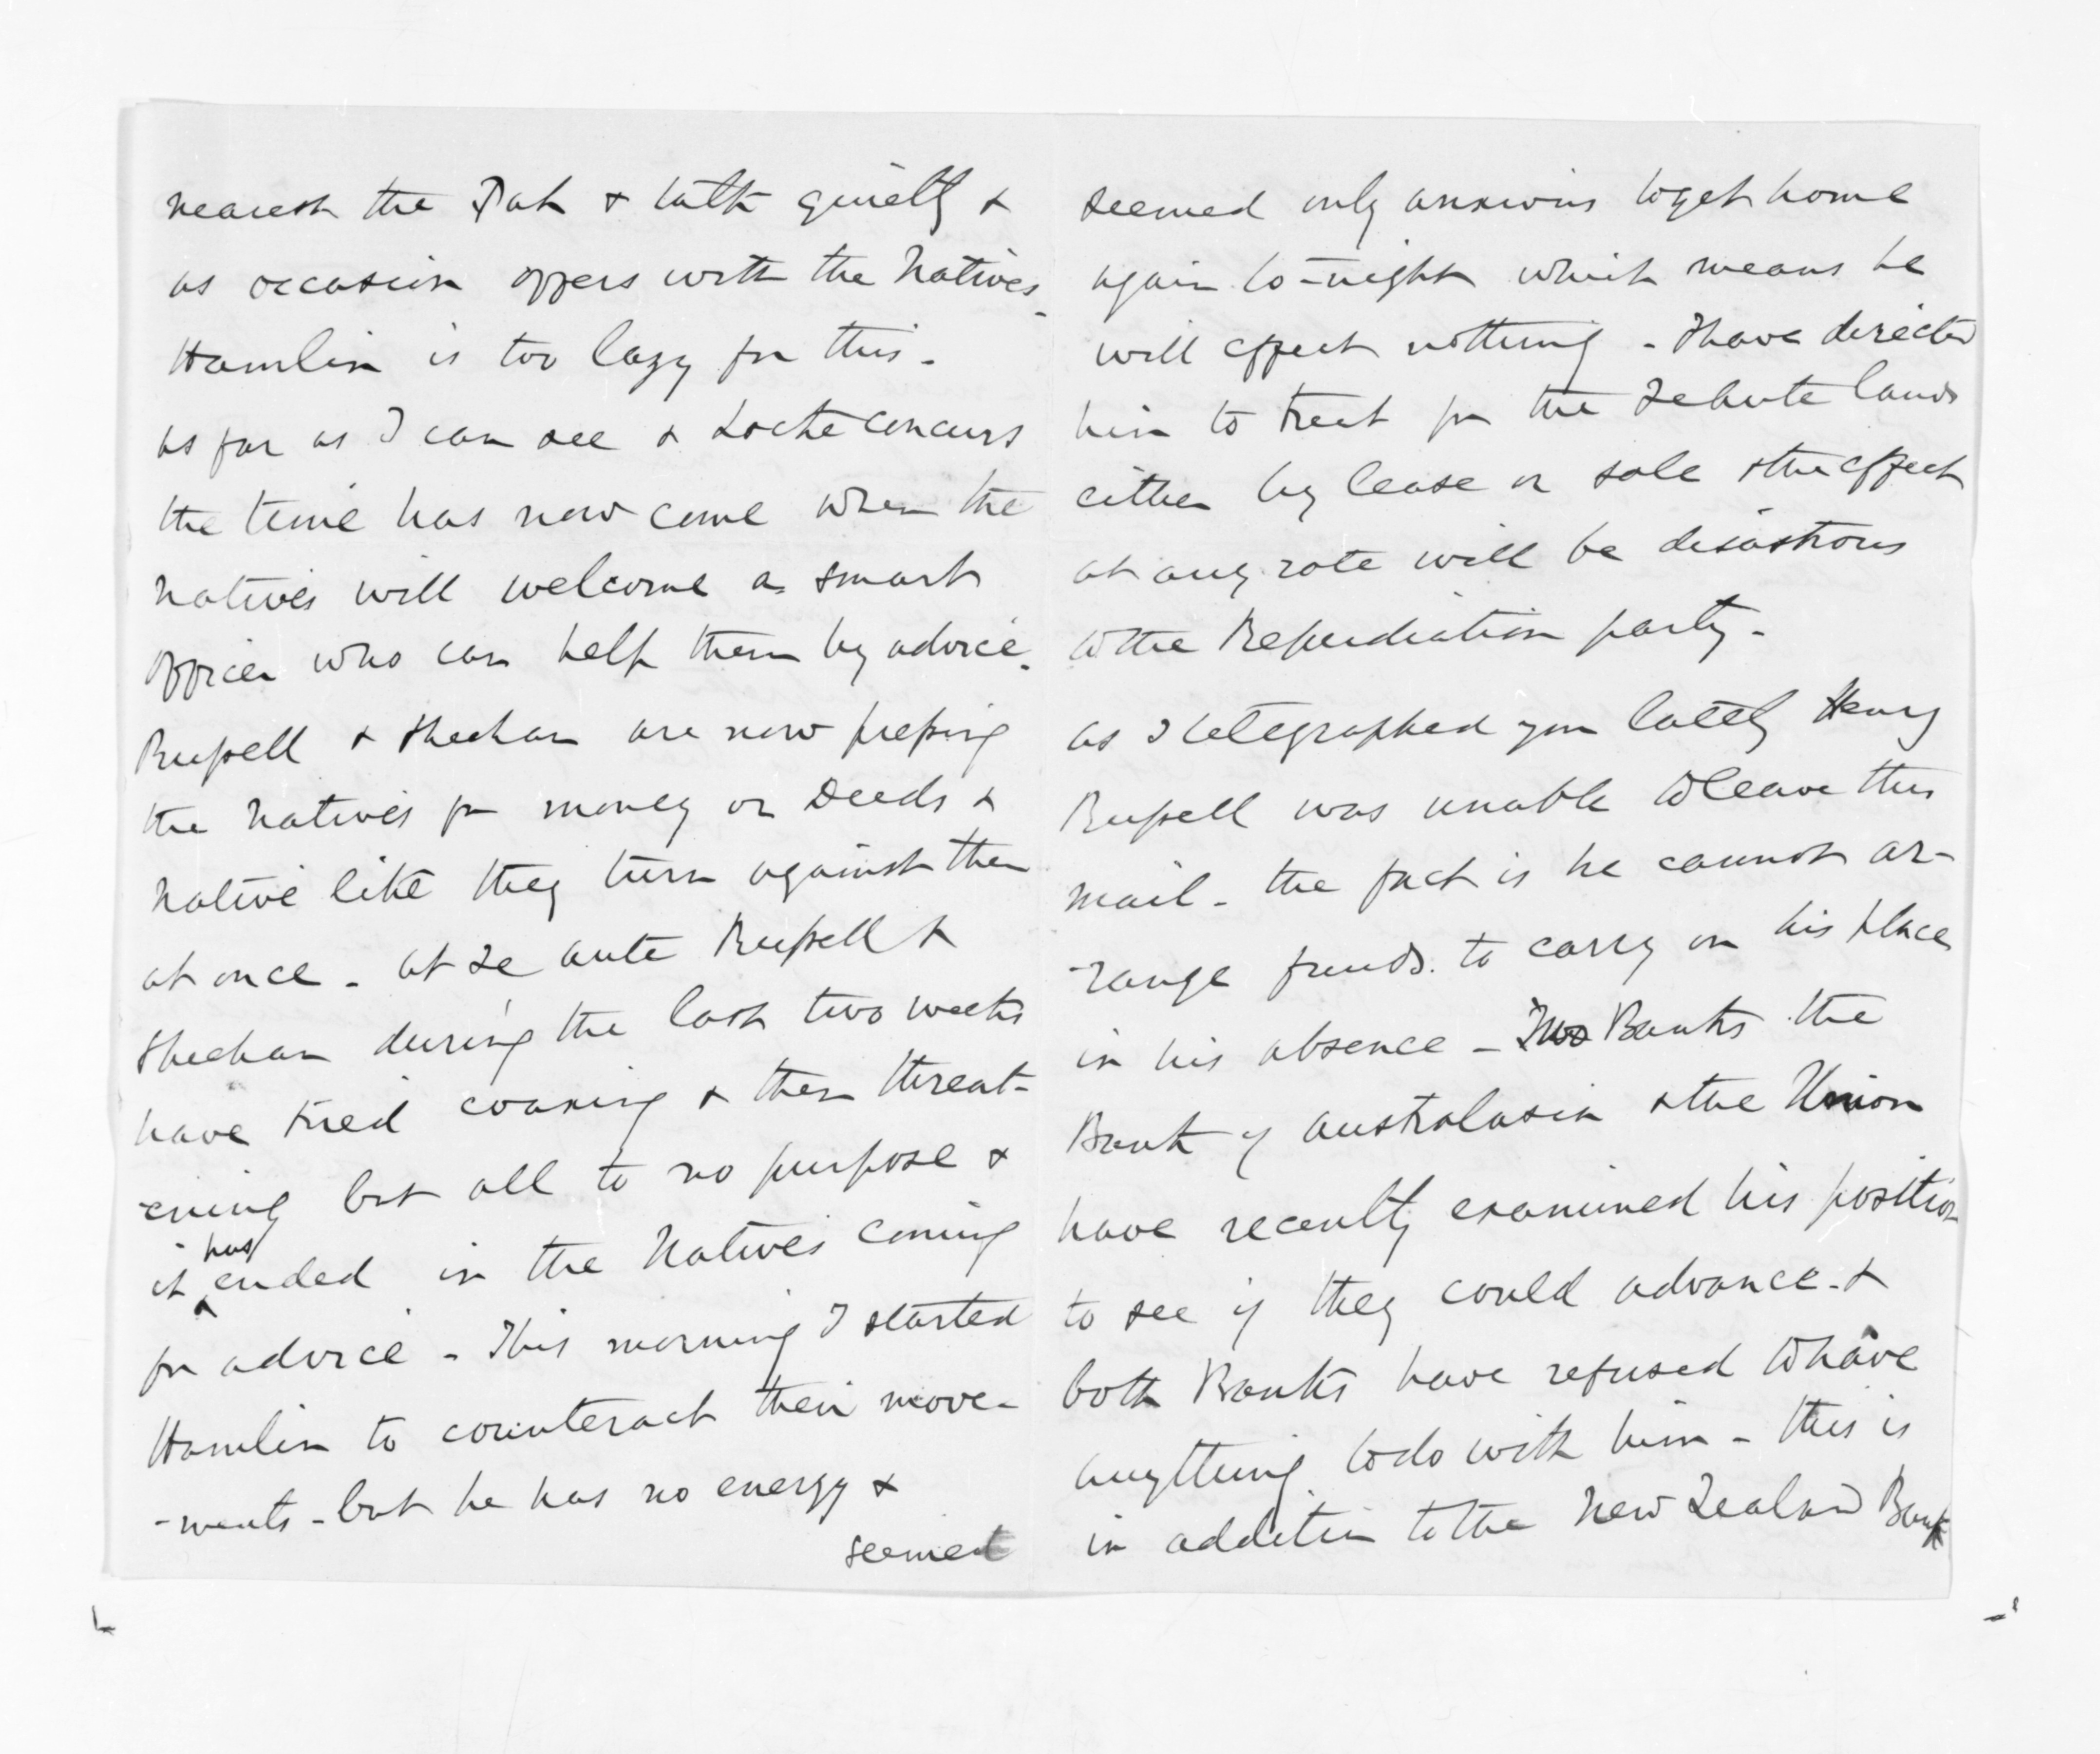 nearest the Pah & talk quietly &
as occasion offers with the Natives.
Hamlin is too lazy for this -
as far as I can see & Locke concurs
the time has now come when the
Natives will welcome a smart
officer who can help them by advice.
Russell & Sheehan are now pressing
the Natives for money or Deeds &
Native like they turn against them
at once - at Te Aute Russell &
Sheehan during the last two weeks
have tried coaxing & then threat-
-ening but all to no purpose &
it has ended in the Natives coming
for advice - This morning I started
Hamlin to counteract their move-
-ments - but he has no energy &
seemed
seemed only anxious to get home
again to-night which means he
will effect nothing - I have directed
him to treat for the Te Hute lands
either by lease or sale & the effect
at any rate will be disastrous
to the Repudiation party -
as I telegraphed you lately Henry
Russell was unable to leave this
mail - the fact is he cannot ar-
-range funds to carry on his place
in his absence - Two Banks the
Bank of Australasia & the Union
have recently examined his position
to see if they could advance - &
both Banks have refused to have
anything to do with him - this is
in addition to the New Zealand Bank